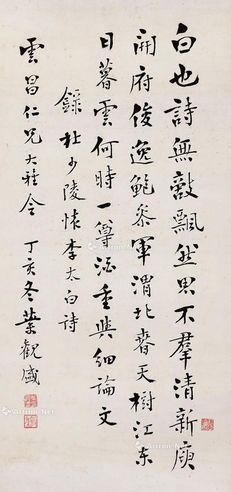 白也詩無敵飄然思不羣清新庾
開府俊逸鮑參軍渭北春天樹江東
日暮雲何時一尊酒重與細論文
錄杜少陵懷李太白詩
雲昌仁兄大雅令
丁亥冬葉觀盛